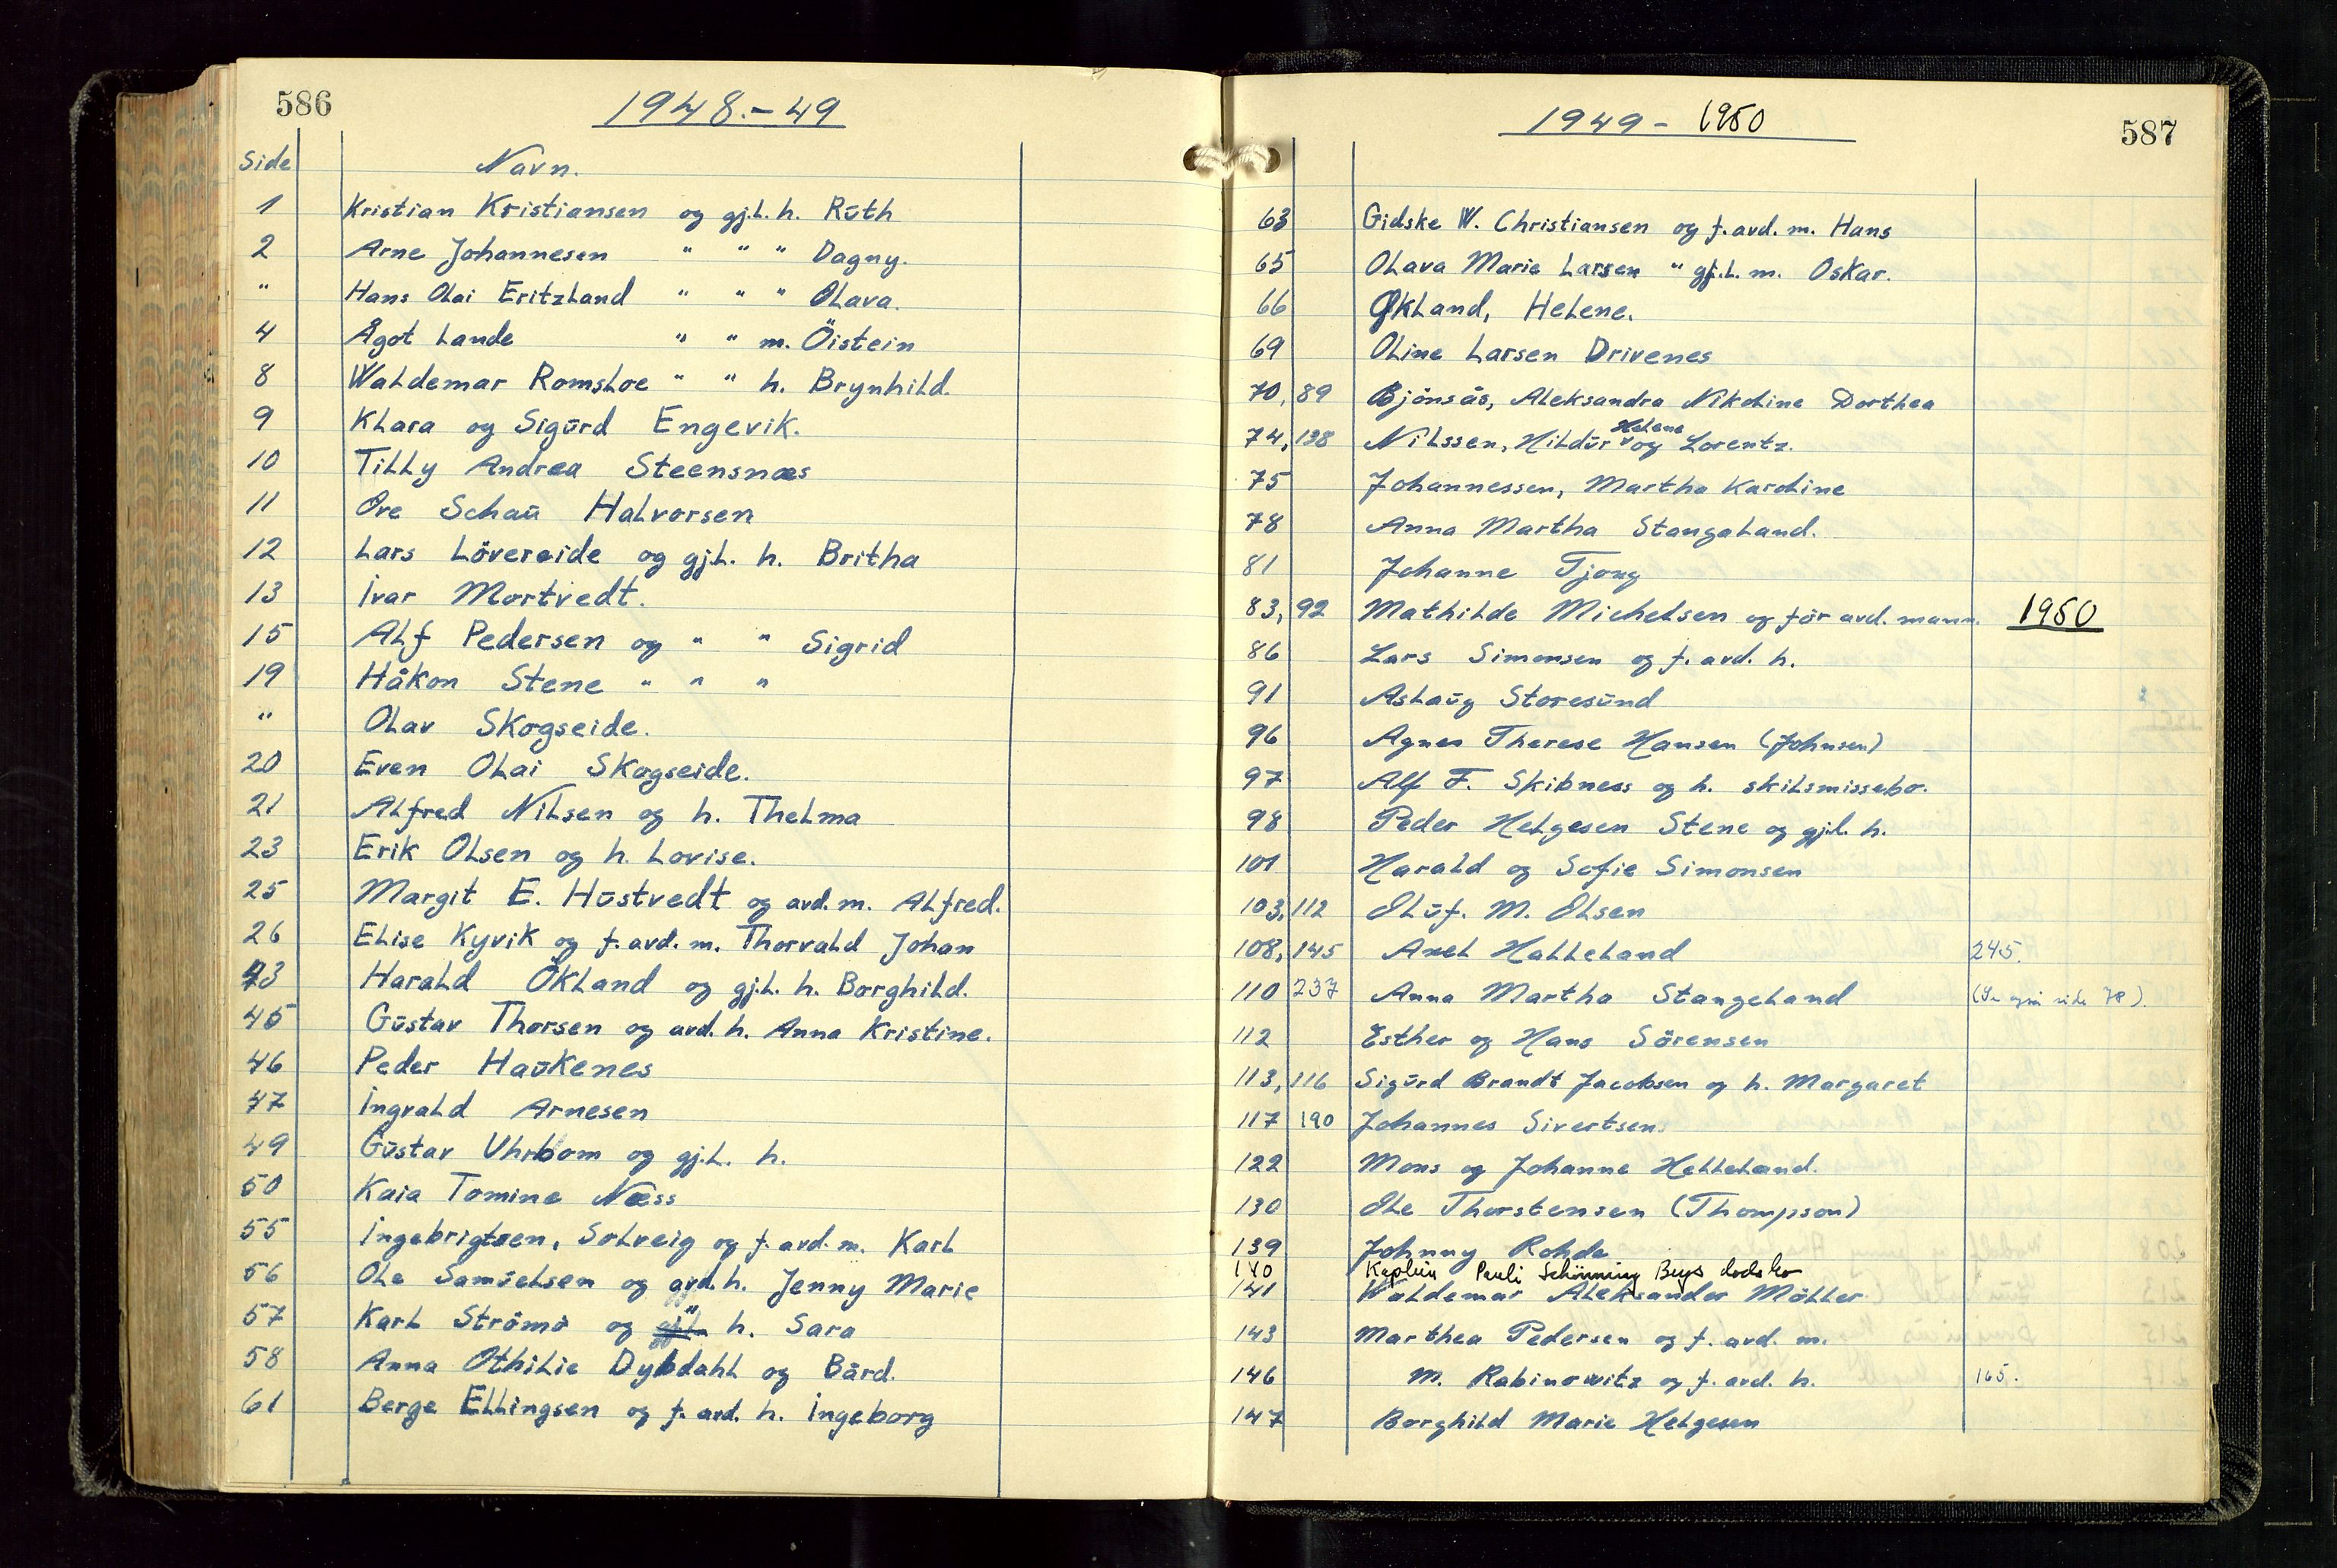 586
1948.-49
Side Navn.
1 Kristian Kristiansen og gjl. h. Ruth
2 Arne Johannesen " " " Dagny.
" Hans Olai Eritzland " " " Olava.
4 Ågot Lande " " m. Öistein
8 Waldemar Romsloe " " h. Brynhild.
9 Klara og Sigurd Engevik.
10 Tilly Andrea Steensnæs
11 Ove Schau Halvorsen
12 Lars Lövereide og gjl. h. Britha
13 Ivar Mortvedt.
15 Alf Pedersen og " " Sigrid
19 Håkon Stene " " "
" Olav Skogseide.
20 Even Olai Skogseide.
21 Alfred Nilsen og h. Thelma
23 Erik Olsen og h. Lovise.
25 Margit E. Hustvedt og avd. m. Alfred.
26 Elise Kyvik og f. avd. m. Thorvald Johan
43 Harald Ökland og gjl. h. Borghild.
45 Gustav Thorsen og avd. h. Anna Kristine.
46 Peder Haukenes
47 Ingvald Arnesen
49 Gustav Uhrbom og gjl. h.
50 Kaia Tomine Næss
55 Ingebrigtsen, Solveig og f. avd. m. Karl
56 Ole Samuelsen og avd. h. Jenny Marie
57 Karl Strömö og gjl. h. Sara
58 Anna Othilie Dybdahl og Bård.
61 Berge Ellingsen og f. avd. h. Ingeborg
587
1949 - 1950
63 Gidske W. Christiansen og f. avd. m. Hans
65 Olava Marie Larsen " gjl. m. Oskar.
66 Økland, Helene.
69 Oline Larsen Drivenes
70, 89 Bjönsås, Aleksandra Nikoline Dorthea
74, 138 Nilssen, Hildur Helene og Lorentz.
75 Johannessen, Martha Karoline
78 Anna Martha Stangaland.
81 Johanne Tjong
83, 92 Mathilde Michelsen og för avd. mann. 1950
86 Lars Simonsen og f. avd. h.
91 Aslaug Storesund
96 Agnes Therese Hansen (Johnsen)
97 Alf F. Skibness og h. skilsmissebo.
98 Peder Helgesen Stene og gjl. h.
101 Harald og Sofie Simonsen
103, 112 Oluf. M. Olsen
108, 145 Axel Halleland 245.
110 237 Anna Martha Stangeland (Se også side 78).
112 Esther og Hans Sörensen
113, 116 Sigurd Brandt Jacobsen og h. Margaret
117 190 Johannes Sivertsen.
122 Mons og Johanne Helleland.
130 Ole Thorstensen (Thompson)
139 Johnny Rohde
140 Pauli Schönning Bugs dødsbo
141 Waldemar Aleksander Möller
143 Marthea Pedersen og f. avd. m.
146 M. Rabinowitz og f. avd. h. 165.
147 Borghild Marie Helgesen